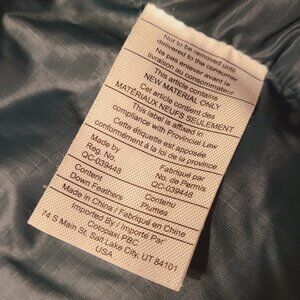 Not to be removed until
delivered to the consumer
Ne pas enlever avant la
livraison au consommateur
This article contains
NEW MATERIAL ONLY
Cet article contient des
MATÉRIAUX NEUFS SEULEMENT
This label is affixed in
compliance with Provincial Law
Cette étiquette est apposée
conformément à la loi de la province
Made by Fabriqué par
Reg. No. No. de Permis
QC-039448 QC-039448
Content Contenu
Down Feathers Plumes
Made in China / Fabriqué en Chine
Imported By / Importé Par
Cotopaxi PBC
74 S Main St, Salt Lake City, UT 84101
USA